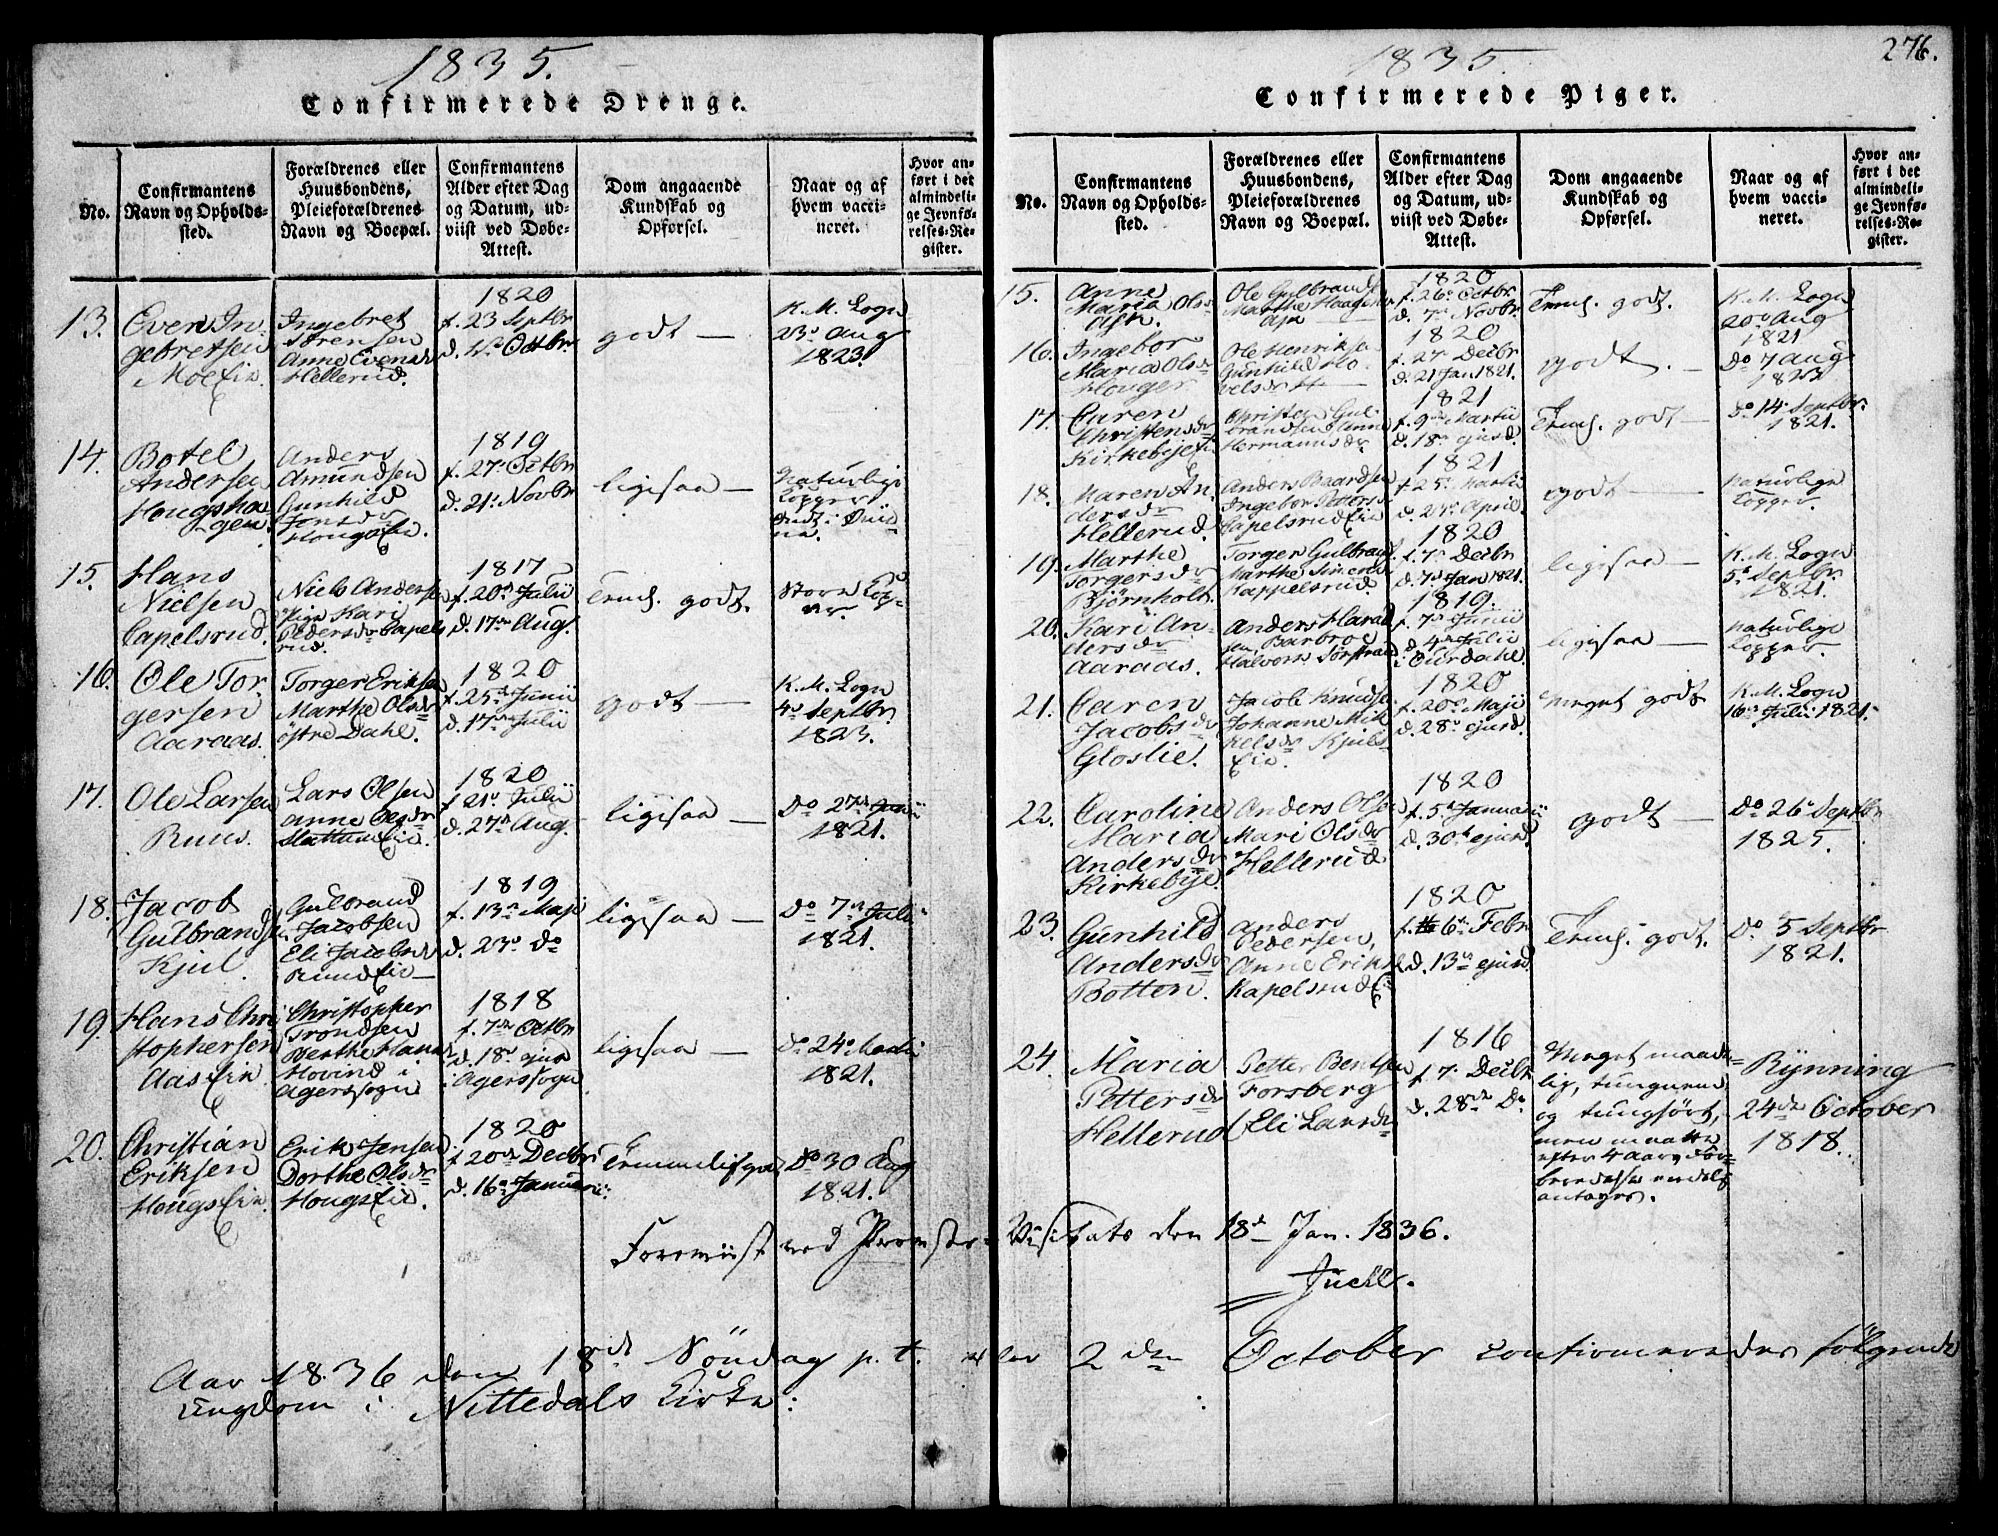 1835.
Confirmerede Drenge.
No.
Confirmantens
Navn og Opholds-
sted.
Forældrenes eller
Huusbondens,
Pleieforældrenes
Navn og Boepæl.
Confirmantens
Alder efter Dag
og Datum, ud-
viist ved Døbe-
Attest.
Dom angaaende
Kundskab og
Opførsel.
Naar og af
hvem vacci-
neret.
Hvor an-
ført i det
almindeli-
ge Jevnfø-
relses-Re-
gister.
13.
Even In-
gebretsen
Moe Eie.
Ingebret
Sørensen
Anne Evensdr
Hellerud.
1820
f. 23 Septbr
d. 1st Octbr.
godt —
K. M. Logn
23d Aug
1823.
14.
Botel
Andersen
Hougsha-
gen.
Anders
Amundsen
Gunhild
Jonsdr
Houg Eie.
1819
f. 27d Octbr
d. 21d Novbr
ligesaa —
Naturlige
Kopper
15.
Hans
Nielsen
Capelsrud.
Niels Andersen
Pige Kari
Pedersdr Capels
rud.
1817
f. 20de Julii
d. 17de Aug.
Teml. godt.
Store Kop-
per
16.
Ole Tor-
gersen
Aaraas.
Torger Eriksen
Marthe Olsdr
østre Dahl.
1820
f. 25de Junii
d. 17de Julii
godt —
K. M. Logn
4d Septbr.
1823.
17.
Ole Larsen
Ruus.
Lars Olsen
Anne Olsdr
Slattum Eie.
1820
f. 21d Julii
d. 27de Aug.
ligesaa —
Do 27de Junii
1821.
18.
Jacob
Gulbrandsen
Kjul.
Gulbrand
Jacobsen
Eli Jacobsdr
Ruud Eie —
1819
f. 13de Maji
d. 23d Do
ligesaa —
Do 7de Julii
1821.
19.
Hans Chri
stophersen
Aas Eie
Christopher
Trondsen
Berthe Hansdr
Hovind i
Agerssogn
1818
f. 7de Octbr
d. 18d ejusd
i Agerssogn
ligesaa —
Do 24d Martii
1821.
20.
Christian
Eriksen
Hougs Eie.
Erik Jensen
Dorthe Olsdr
Hougs Eie.
1820
f. 20de Decbr
d. 16de Januarii.
Temmelig godt
Do 30 Aug
1821.
Foreviist ved Provste-
Aar 1836 den 18de Søndag p. t. eller
Ungdom i Nittedals Kirke:
1835.
276.
Confirmerede Piger.
No.
Confirmantens
Navn og Opholds-
sted.
Forældrenes eller
Huusbondens,
Pleieforældrenes
Navn og Boepæl.
Confirmantens
Alder efter Dag
og Datum, ud-
viist ved Døbe-
Attest.
Dom angaaende
Kundskab og
Opførsel.
Naar og af
hvem vacci-
neret.
Hvor an-
ført i det
almindeli-
ge Jevnfø-
relses-Re-
gister.
15.
Anne
Maria Ols-
Ask.
Ole Gulbrands
Marthe Haagens
Ask —
1820
f. 26d Octbr.
d. 7de Novbr.
Teml. godt.
K. M. Logn
20d Aug
1821
16.
Ingebor
Maria Olsdr
Houger
Ole Henriks
Gunhild Ho-
velsdr
1820
f. 27d Decbr
d. 21 Jan 1821.
godt. —
Do 7 Aug
1823
17.
Caren
Christensdr
Kirkebye Ei
Christen Gul-
brandsen Anne
Hermannsdr
1821
f. 9de Martii
d. 18de ejusd.
Teml. godt —
Do 14d Septbr.
1821.
18.
Maren An-
dersdr
Hellerud.
Anders Baardsen
Ingebor Petters
Capelsrud Eie
1821
f. 25d Martii
d. 27d April.
godt —
Naturlige
Kopper
19.
Marthe
Torgersdr
Bjørnholt.
Torger Gulbrand
Marthe Simensd
Kappelsrud.
1820
f. 7de Decbr
d. 7d Jan 1821.
ligesaa —
K. M. Logn
5d Septbr.
1821.
20.
Kari An-
dersdr
Aaraas.
Anders Harald
sen, Barbroe
Halvors Sørstrand
1819.
f. 7de Junii
d. 4de Julii
i Ourdahl.
ligesaa —
Naturlige
Kopper
21.
Caren
Jacobsdr
Gloslie.
Jacob Knudse
Johanne Mik
kelsdr Kjuls
Eie.
1820
f. 20d Maji
d. 28d ejusd.
Meget godt
K. M. Logn
16de Julii 1821.
22.
Caroline
Maria
Andersdr
Kirkebye.
Anders Olsen
Mari Olsdr
Hellerud
1820
f. 5d Januarii
d. 30d ejusd.
godt —
Do 26d Septbr
1825.
23.
Gunhild
Andersdr
Botten.
Anders
Pedersen,
Anne Eriks
Kapelsrud Ei
1820
f. 6d Febr
d. 13de ejusd
Teml. godt.
Do 5 Septbr
1821.
24.
Maria
Pettersdr
Hellerud
Petter Bentsen
Forsberg
Eli Larsdr
1816
f. 7d Decbr
d. 28de Do
Meget maade-
lig, tungnem
og tunghørt,
men maatte
efter 4 aars For-
beredelse endelig
antages.
Rynning
24de October
1818.
Visitats den 18d Jan. 1836.
Juell.
2den October confirmeredes følgende
: